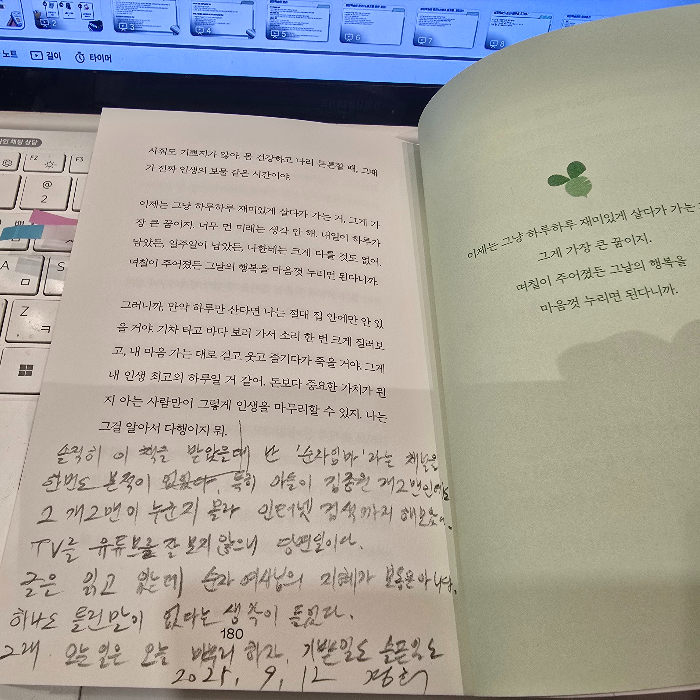 노트
길이
타이머
3
4
5
6
7
8
F2
@
2
A
S
Z
ㅁ
ㅋ
사줘도 기쁘지가 않아. 몸 건강하고 다리 튼튼할 때, 그때
가 진짜 인생의 보물 같은 시간이야.
이제는 그냥 하루하루 재미있게 살다가 가는 거, 그게 가
장 큰 꿈이지. 너무 먼 미래는 생각 안 해. 내일이 하루가
남았든, 일주일이 남았든, 나한테는 크게 다를 것도 없어.
며칠이 주어졌든 그날의 행복을 마음껏 누리면 된다니까.
그러니까, 만약 하루만 산다면 나는 절대 집 안에만 안 있
을 거야. 기차 타고 바다 보러 가서 소리 한 번 크게 질러보
고, 내 마음 가는 대로 걷고 웃고 즐기다가 죽을 거야. 그게
내 인생 최고의 하루일 거 같아. 돈보다 중요한 가치가 뭔
지 아는 사람만이 그렇게 인생을 마무리할 수 있지. 나는
그걸 알아서 다행이지 뭐.
솔직히 이 책을 받았는데 난 '순자엄마'라는 채널을
한번도 본적이 없었다. 특히 아들이 김종원 개그맨인데도
그 개그맨이 누군지 몰라 인터넷 검색까지 해보았다.
TV를 유튜브를 잘 보지 않으니 당연일이다.
글은 읽고 있는데 순자 여사님의 지혜가 보통은 아니다.
하나도 틀린말이 없다는 생각이 들었다.
그래. 오늘 일은 오늘 마무리 하자. 기쁜일도 슬픈일도
180
2025. 9. 12
이제는 그냥 하루하루 재미있게 살다가 가는
그게 가장 큰 꿈이지.
며칠이 주어졌든 그날의 행복을
마음껏 누리면 된다니까.